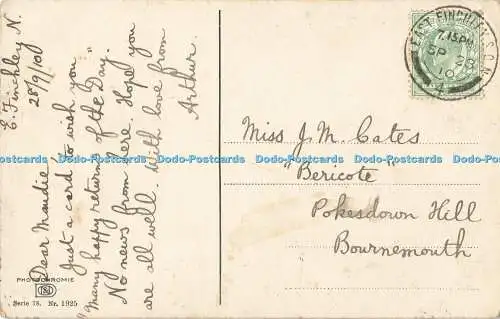 E. Finchley N.
28/9/10
Dear Maudie,
Just a card to wish you
"Many happy returns of the Day."
No news from here. Hope you
are all well. With love from
Arthur.
EAST FINCHLEY S.O.N.
7.15 PM
SP 28
10
Miss J. M. Cates
"Bericote"
Pokesdown Hill
Bournemouth
PHOTOCHROMIE
Serie 78. Nr. 1925
Dodo-Postcards Dodo-Postcards Dodo-Postcards Dodo-Postcards Dodo-Postcards